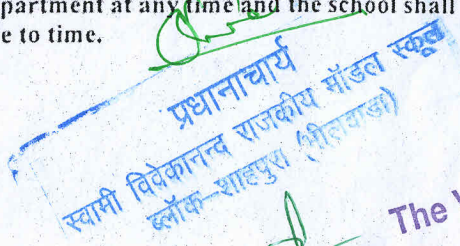 partment at any time and the school shall
e to time.
प्रधानाचार्य
स्वामी विवेकानन्द राजकीय मॉडल स्कूल
ब्लॉक-शाहपुरा (भीलवाडा)
The